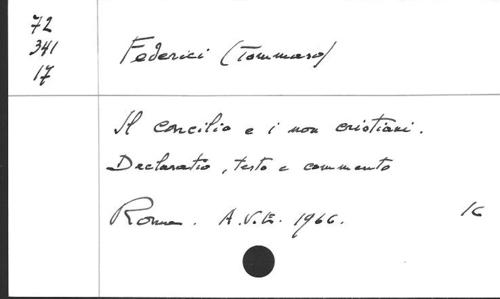 72
341
17
Federici (Tommaso)
Il concilio e i non cristiani.
Declaratio, testo e commento
Roma. A.V.E. 1966. 16